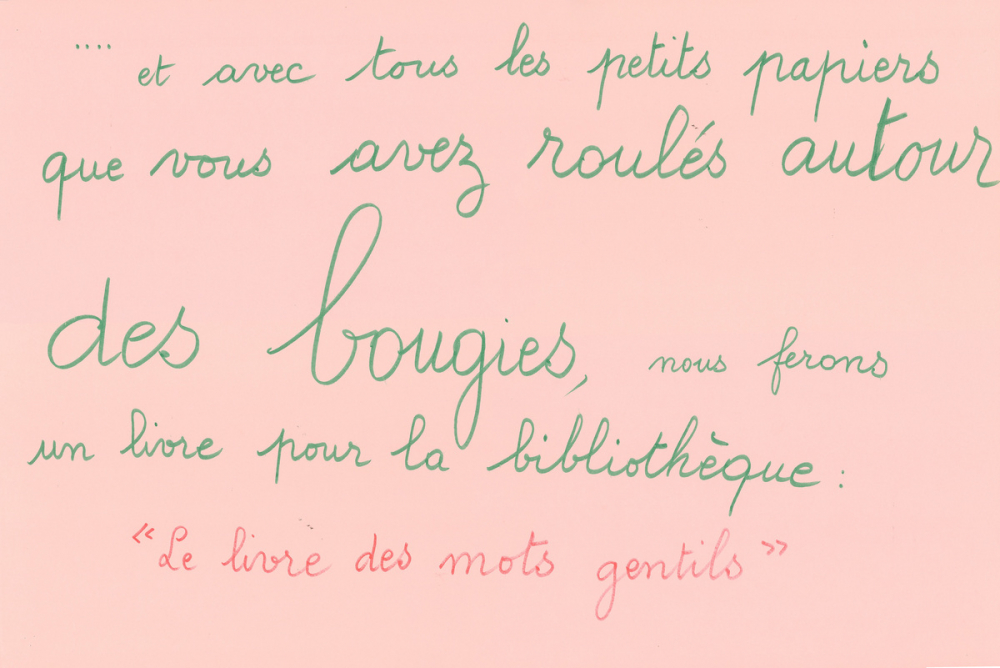 .... et avec tous les petits papiers
que vous avez roulés autour
des bougies, nous ferons
un livre pour la bibliothèque :
« Le livre des mots gentils »